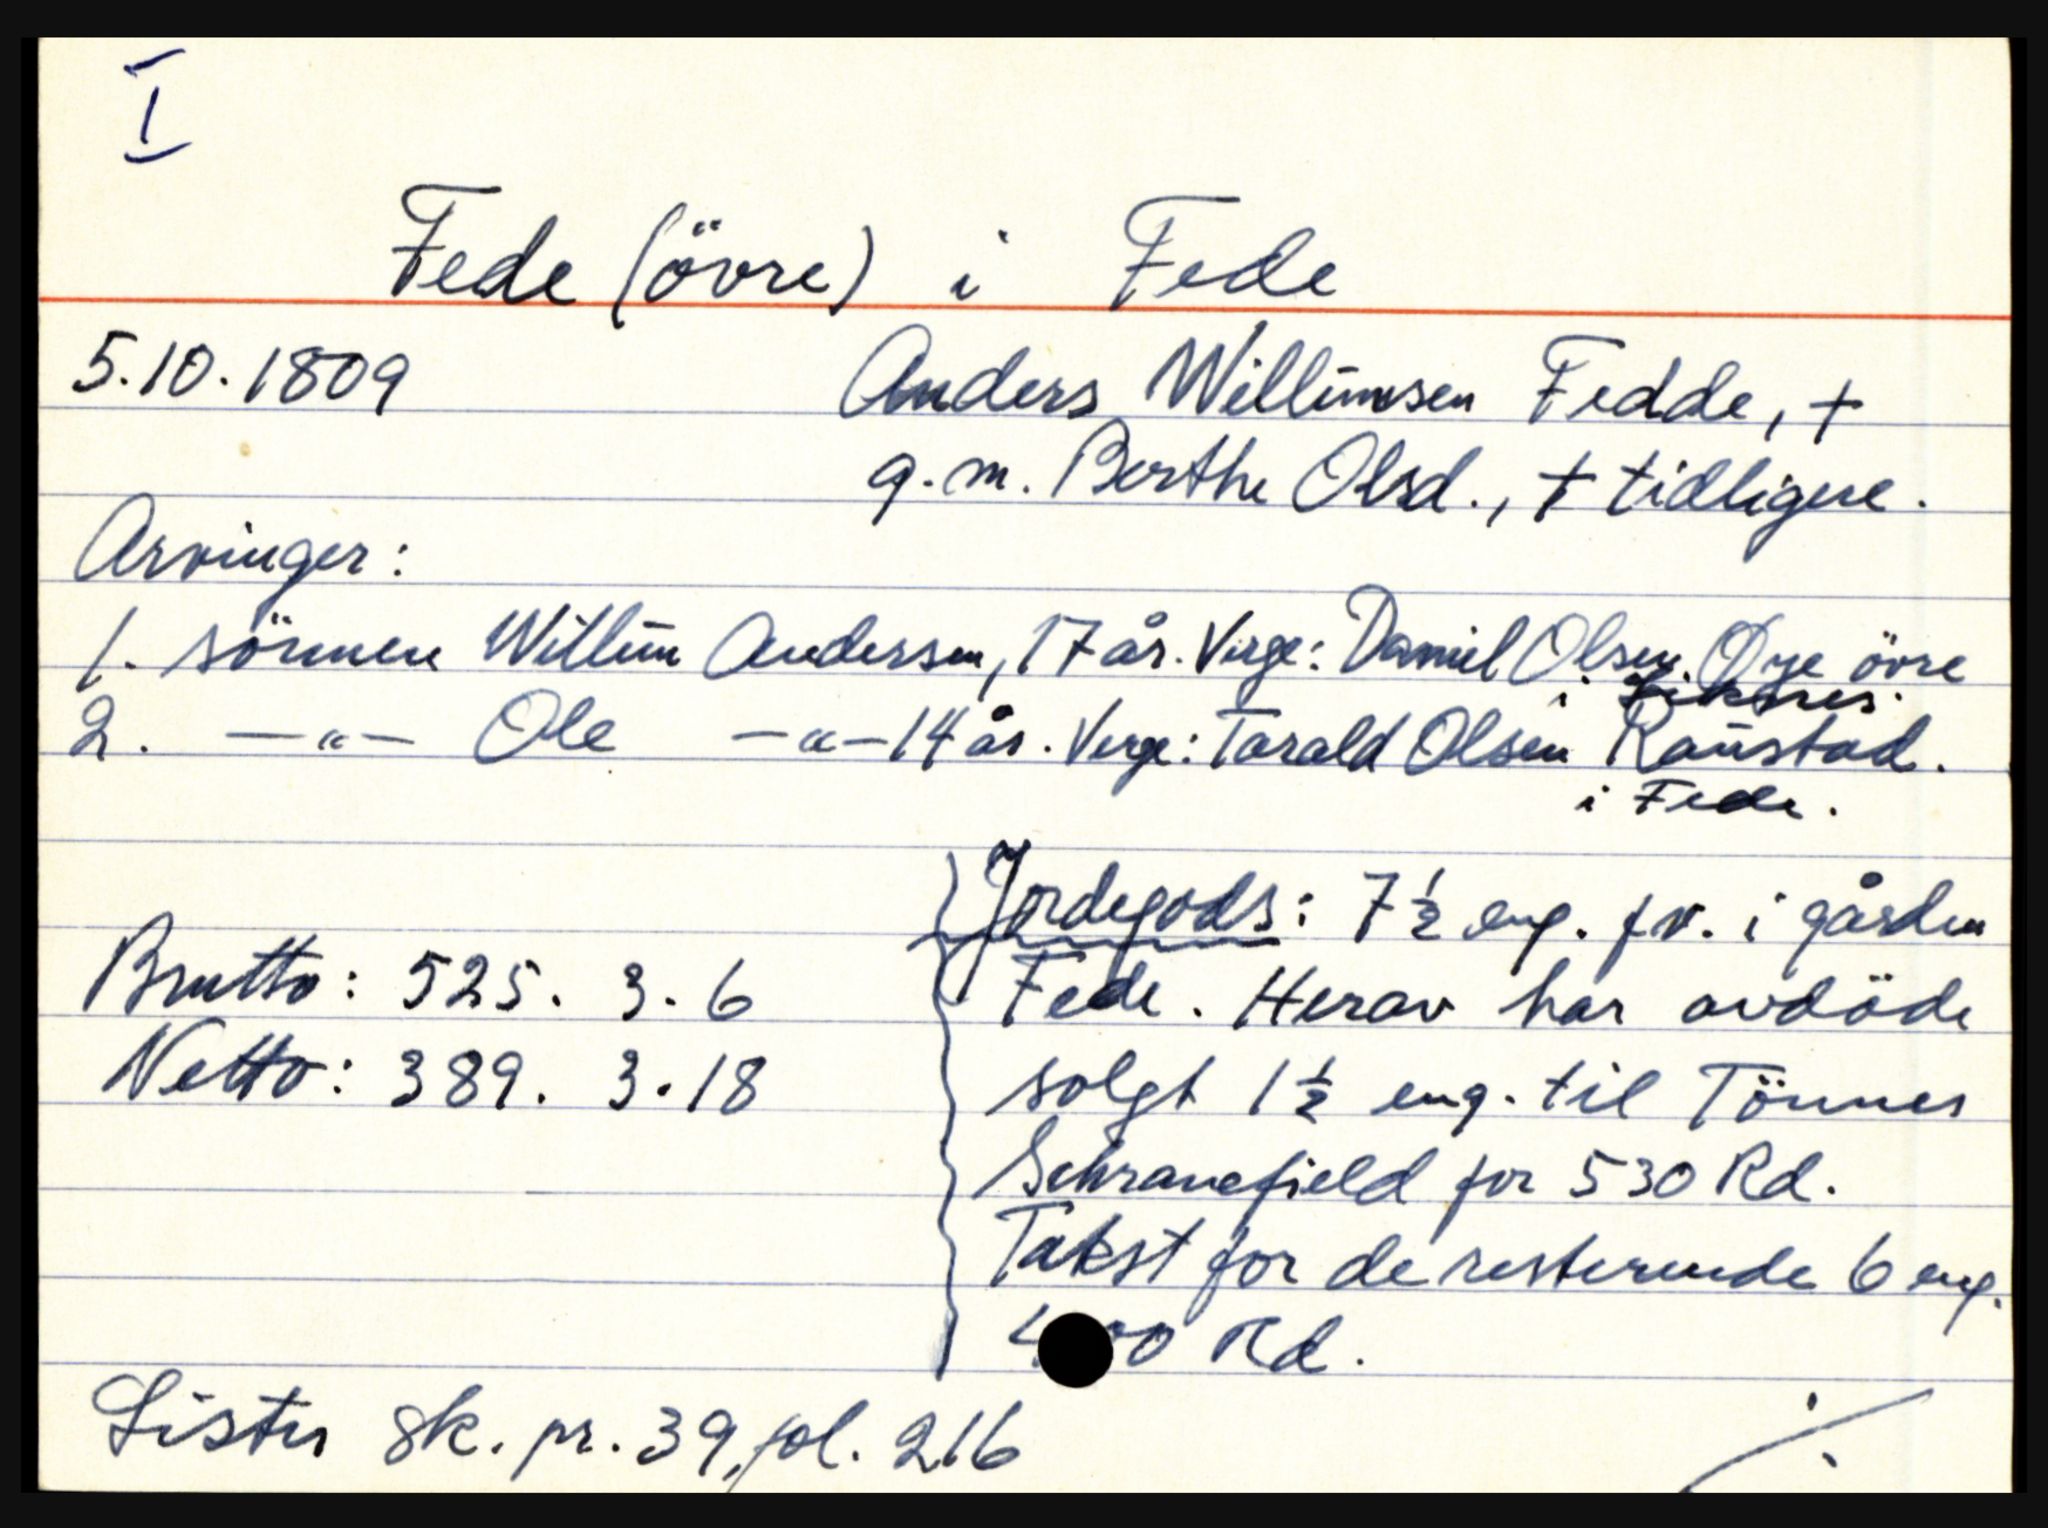 I
Fede (övre) i Fede
5.10.1809 Anders Willumsen Fedde, †
g.m. Berthe Olsd., † tidligere.
Arvinger:
1. sönnen Willum Andersen, 17 år. Verge: Daniel Olsen Øye övre
i
2. —"— Ole —"— 14 år. Verge: Tarald Olsen Raustad.
i Fede.
Jordegods: 7½ eng. fv. i gården
Brutto: 525. 3. 6 Fede. Herav har avdöde
Netto: 389. 3. 18 solgt 1½ eng. til Tönnes
for 530 Rd.
Takst for de resterende 6 eng.
Rd.
Lister sk. pr. 39, fol. 216
./.